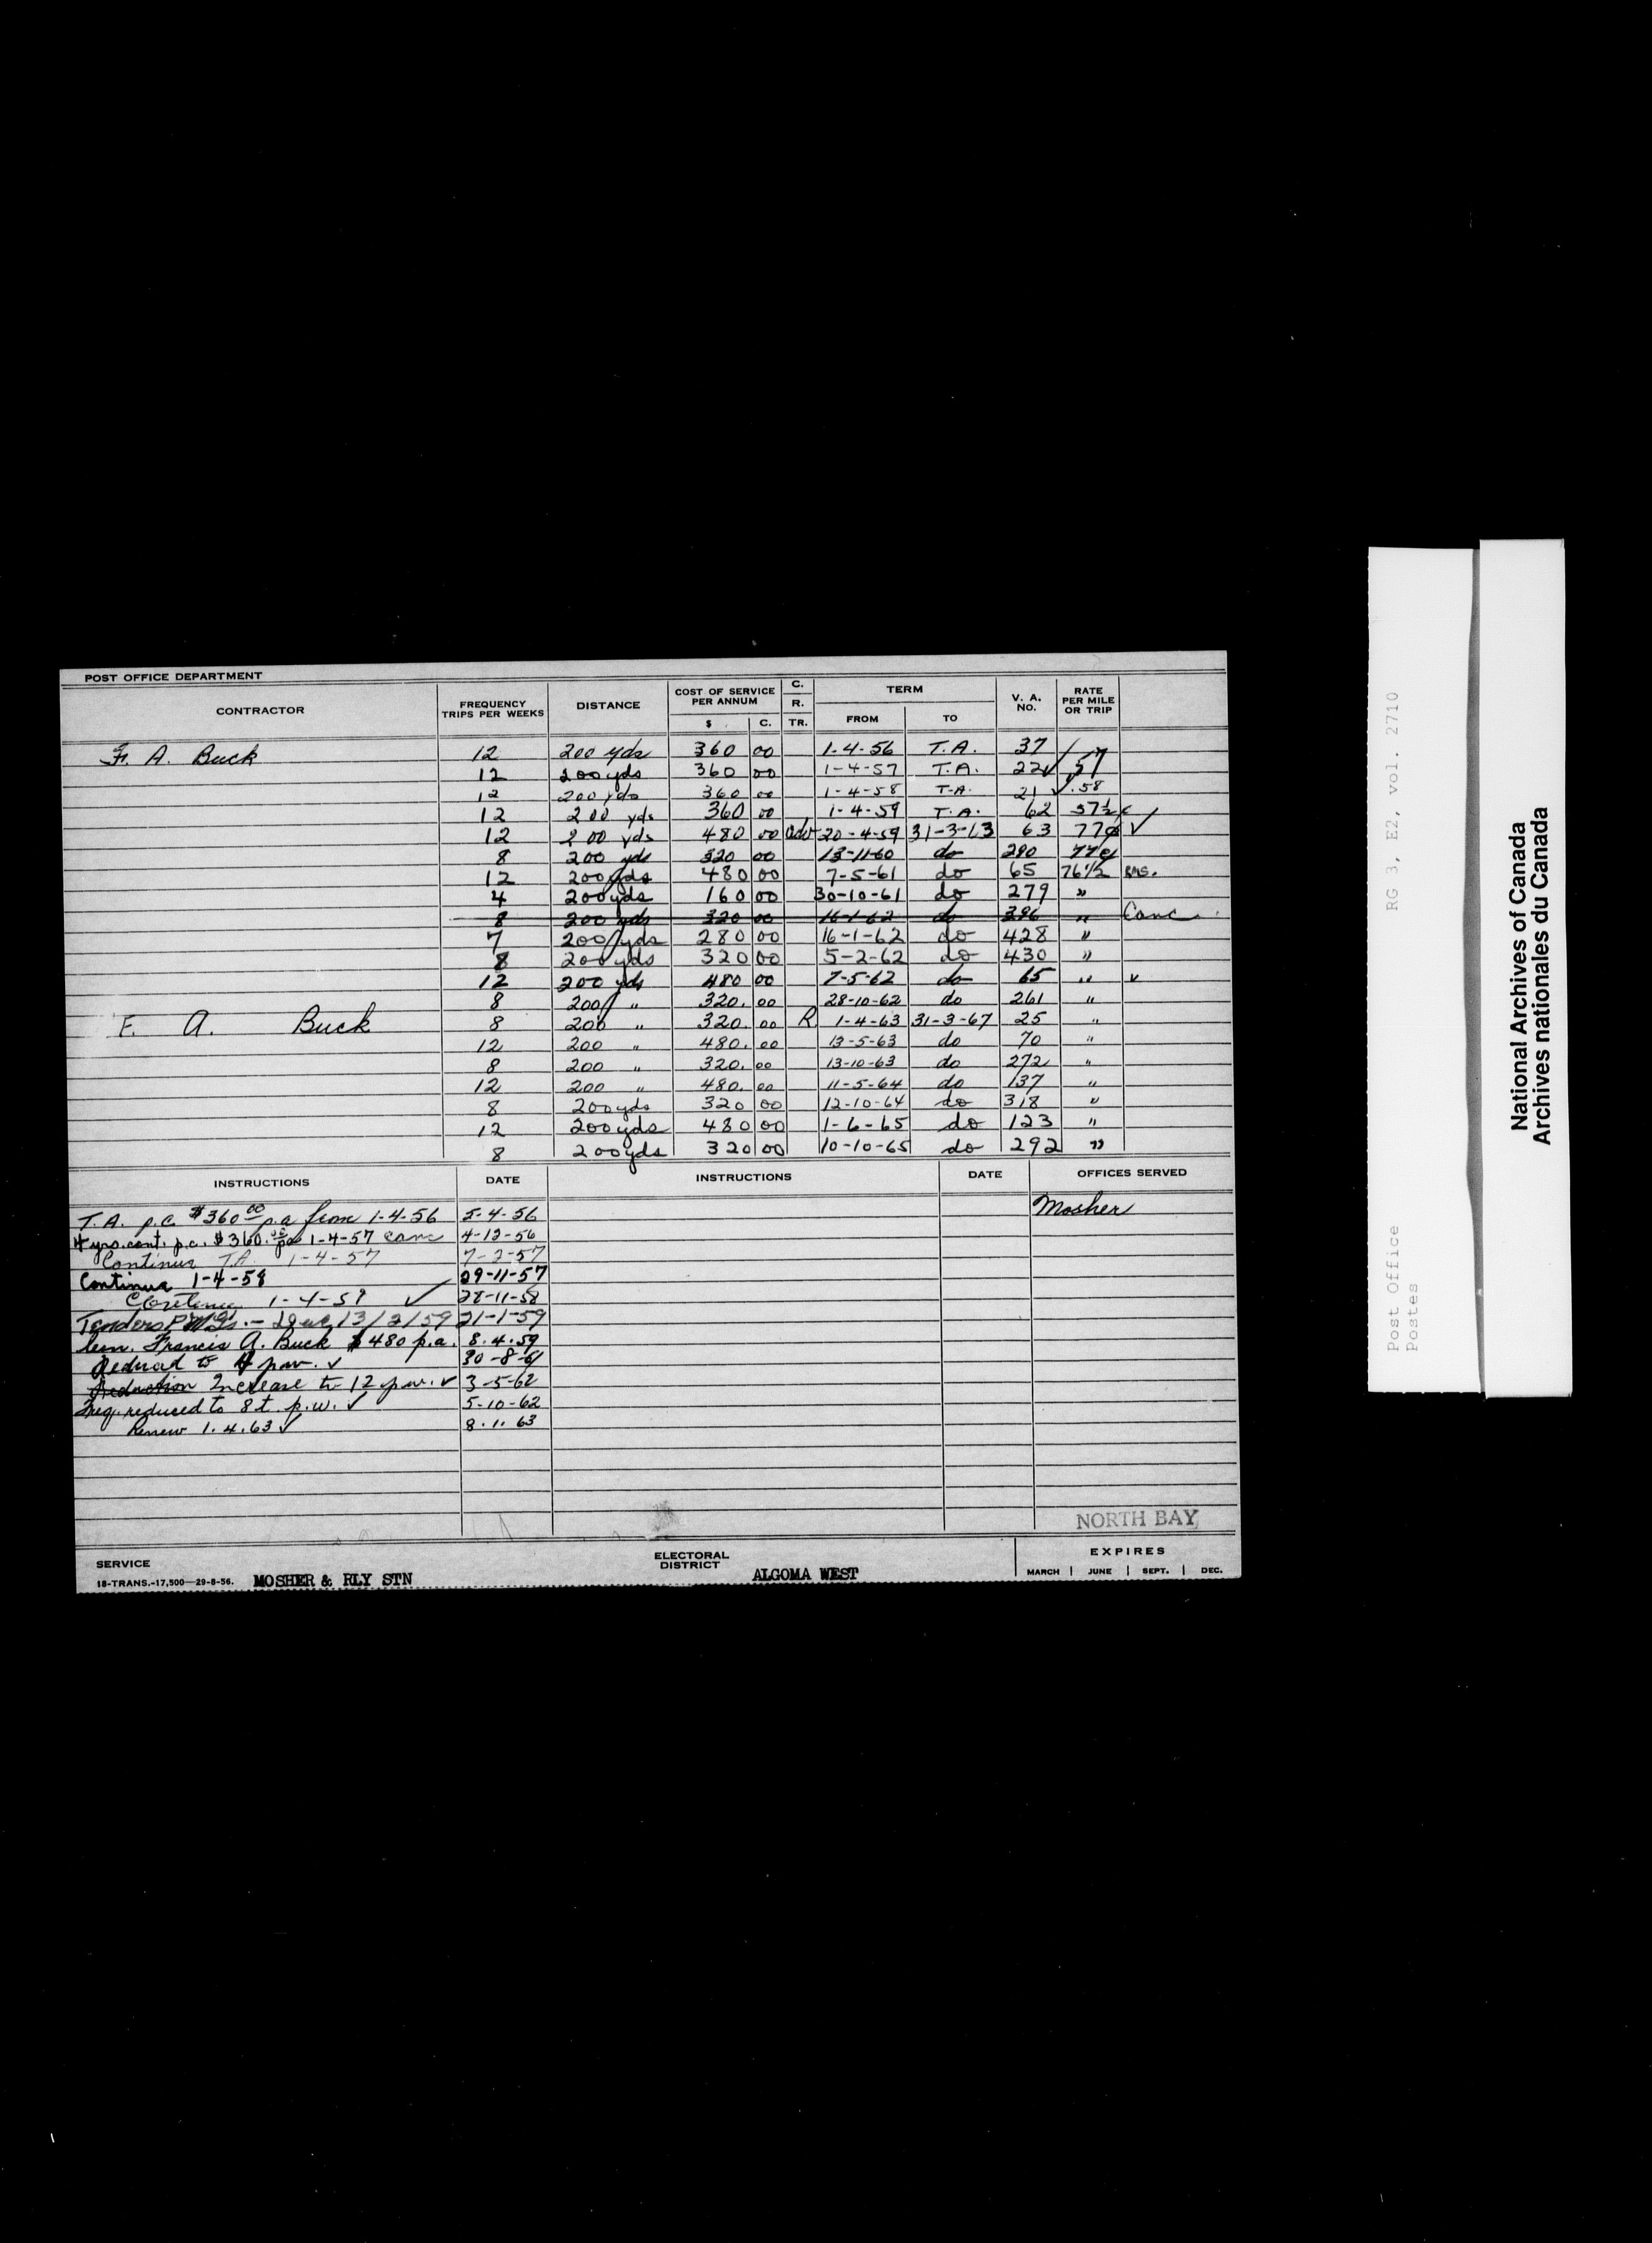 POST OFFICE DEPARTMENT
CONTRACTOR FREQUENCY TRIPS PER WEEKS DISTANCE COST OF SERVICE PER ANNUM $ C. C. R. TR. TERM FROM TO V. A. NO. RATE PER MILE OR TRIP
F. A. Buck 12 200 yds 360 00 1-4-56 T.A. 37
12 200 yds 360 00 1-4-57 T.A. 22 ✓ .57
12 200 yds 360 00 1-4-58 T.A. 21 ✓ .58
12 200 yds 360 00 1-4-59 T.A. 62 57½¢
12 200 yds 480 00 adv 20-4-59 31-3-63 63 77¢ ✓
8 200 yds 320 00 13-11-60 do 290 77¢
12 200 yds 480 00 7-5-61 do 65 76½ RMS.
4 200 yds 160 00 30-10-61 do 279 "
8 200 yds 320 00 16-1-62 do 396 " Canc.
7 200 yds 280 00 16-1-62 do 428 "
8 200 yds 320 00 5-2-62 do 430 "
12 200 yds 480 00 7-5-62 do 65 " ✓
8 200 " 320. 00 28-10-62 do 261 "
F. A. Buck 8 200 " 320. 00 R 1-4-63 31-3-67 25 "
12 200 " 480. 00 13-5-63 do 70 "
8 200 " 320. 00 13-10-63 do 272 "
12 200 " 480. 00 11-5-64 do 137 "
8 200 yds 320 00 12-10-64 do 318 "
12 200 yds 480 00 1-6-65 do 123 "
8 200 yds 320 00 10-10-65 do 292 "
INSTRUCTIONS DATE INSTRUCTIONS DATE OFFICES SERVED
T.A. p.c. $360 00 p.a from 1-4-56 5-4-56 Mosher
4 yrs. cont. p.c. $360. 00 pa 1-4-57 canc 4-12-56
Continue TA 1-4-57 7-2-57
Continue 1-4-58 29-11-57
Continue 1-4-59 ✓ 28-11-58
Tenders - Due 13/3/59 21-1-59
Francis A. Buck $480 p.a. 8.4.59
Reduced to 4 p.w. ✓ 30-8-61
Reduction Increase to 12 p.w. ✓ 3-5-62
Freq. reduced to 8 t. p.w. ✓ 5-10-62
Renew 1.4.63 ✓ 8.1.63
NORTH BAY
SERVICE ELECTORAL DISTRICT EXPIRES
18-TRANS.-17,500—29-8-56. MOSHER & RLY STN ALGOMA WEST MARCH | JUNE | SEPT. | DEC.
Post Office RG 3, E2, vol. 2710
Postes
National Archives of Canada
Archives nationales du Canada